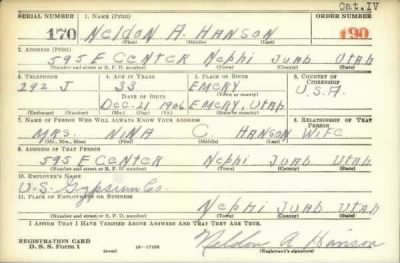 Cat. IV
SERIAL NUMBER 1. NAME (Print) ORDER NUMBER
170 Neldon A. Hanson 190
(First) (Middle) (Last)
2. ADDRESS (Print)
595 E Center Nephi Juab Utah
(Number and street or R. F. D. number) (Town) (County) (State)
3. TELEPHONE 4. AGE IN YEARS 5. PLACE OF BIRTH 6. COUNTRY OF CITIZENSHIP
292 J 33 Emery U.S.A.
DATE OF BIRTH (Town or county)
Dec. 21 1906 Emery, Utah
(Exchange) (Number) (Mo.) (Day) (Yr.) (State or country)
7. NAME OF PERSON WHO WILL ALWAYS KNOW YOUR ADDRESS 8. RELATIONSHIP OF THAT PERSON
Mrs. Nina C. Hanson Wife
(Mr., Mrs., Miss) (First) (Middle) (Last)
9. ADDRESS OF THAT PERSON
595 E Center Nephi Juab Utah
(Number and street or R. F. D. number) (Town) (County) (State)
10. EMPLOYER'S NAME
U.S. Gypsium Co.
11. PLACE OF EMPLOYMENT OR BUSINESS
Nephi Juab Utah
(Number and street or R. F. D. number) (Town) (County) (State)
I AFFIRM THAT I HAVE VERIFIED ABOVE ANSWERS AND THAT THEY ARE TRUE.
REGISTRATION CARD
D. S. S. Form 1 16-17105 Neldon A Hanson
(Registrant's signature)